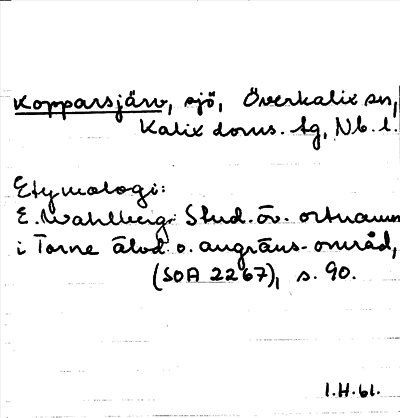 Kopparsjärv, sjö, Överkalix sn,
Kalix doms. tg, Nb. l.
Etymologi:
E. Wahlberg: Stud. öv. ortnamn
i Torne älvd o. angräns. område,
(SOA 2267), s. 90.
I.H.61.